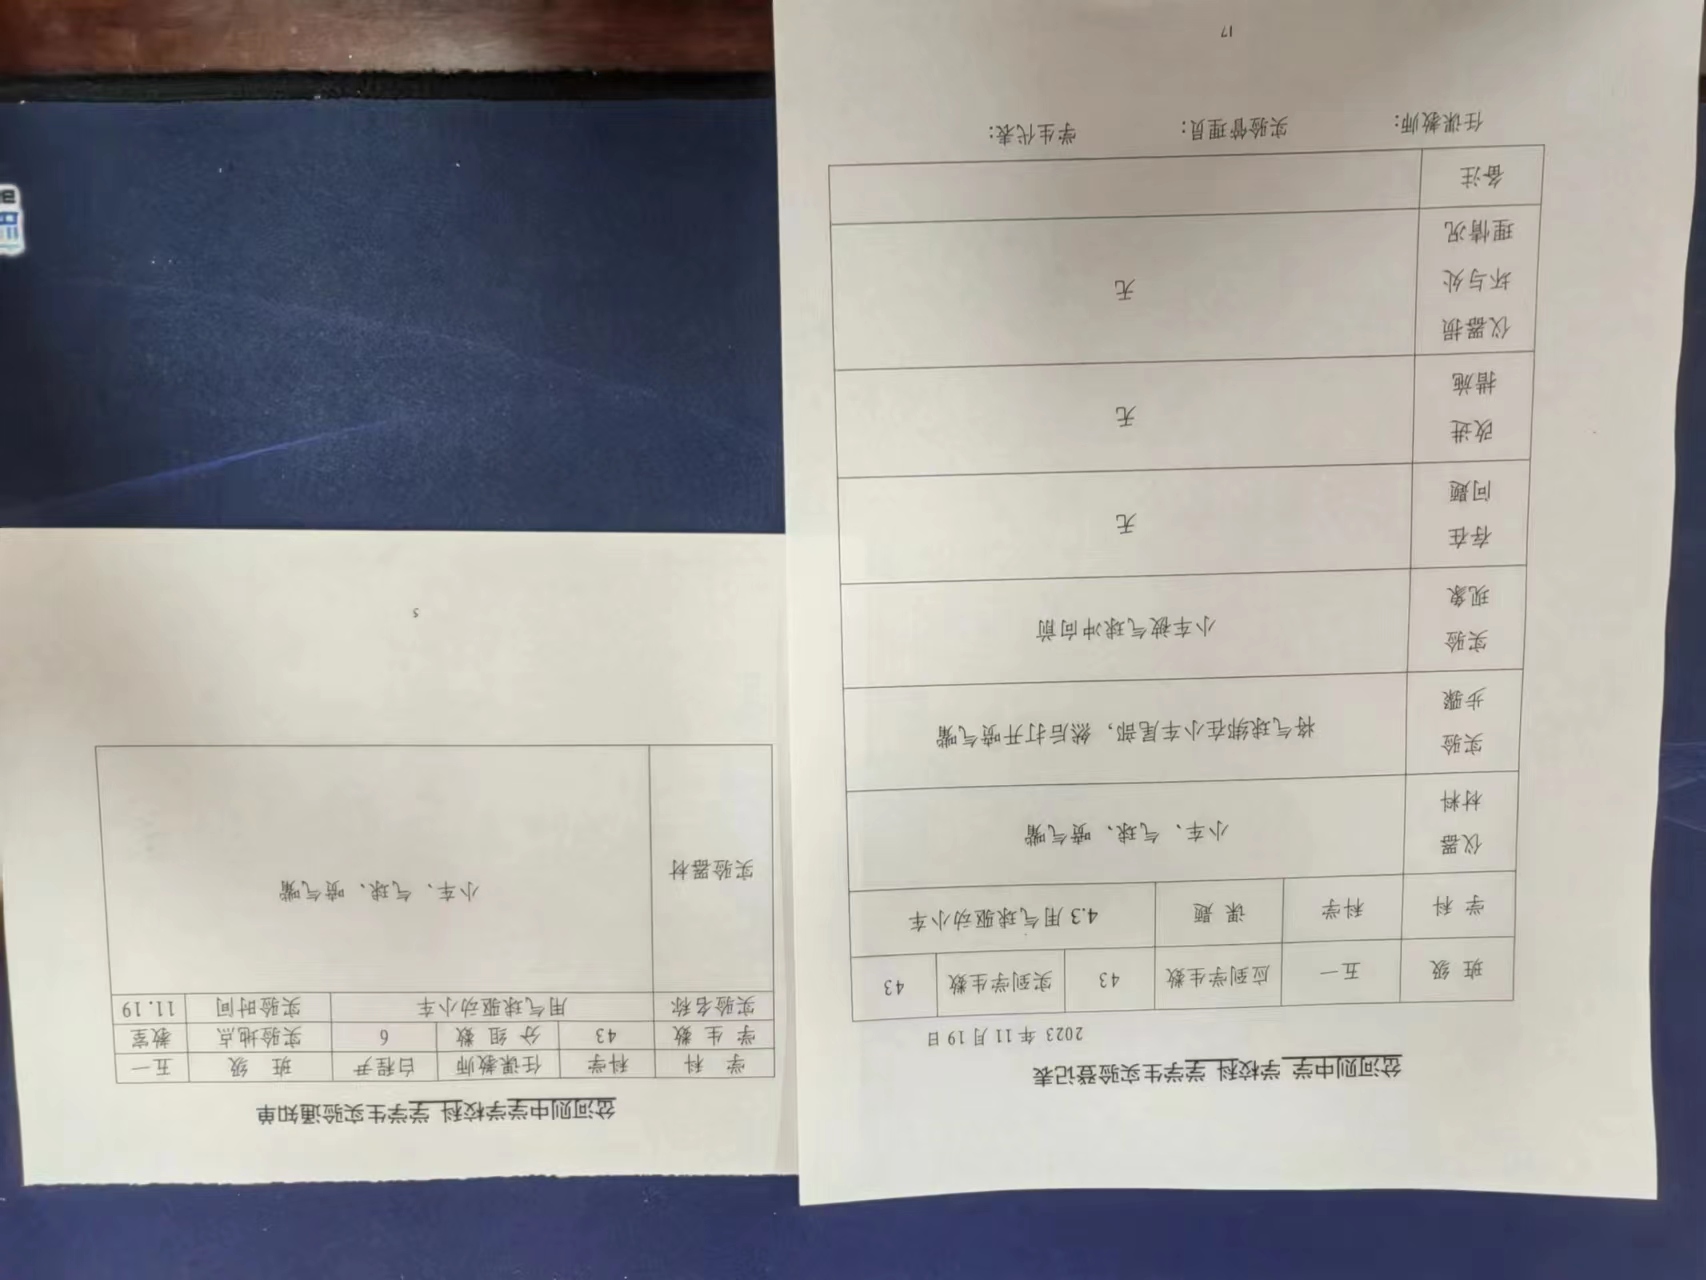 岔河则中学 学校科 学学生实验登记表
2023 年 11 月 19 日
班 级 五一 应到学生数 43 实到学生数 43
学 科 科学 课 题 4.3 用气球驱动小车
仪器材料 小车、气球、喷气嘴
实验步骤 将气球绑在小车尾部，然后打开喷气嘴
实验现象 小车被气球冲向前
存在问题 无
改进措施 无
仪器损坏与处理情况 无
备注
任课教师： 实验管理员： 学生代表：
17
岔河则中学学校科 学学生实验通知单
学 科 科学 任课教师 白程尹 班 级 五一
学 生 数 43 分 组 数 6 实验地点 教室
实验名称 用气球驱动小车 实验时间 11.19
实验器材 小车、气球、喷气嘴
5